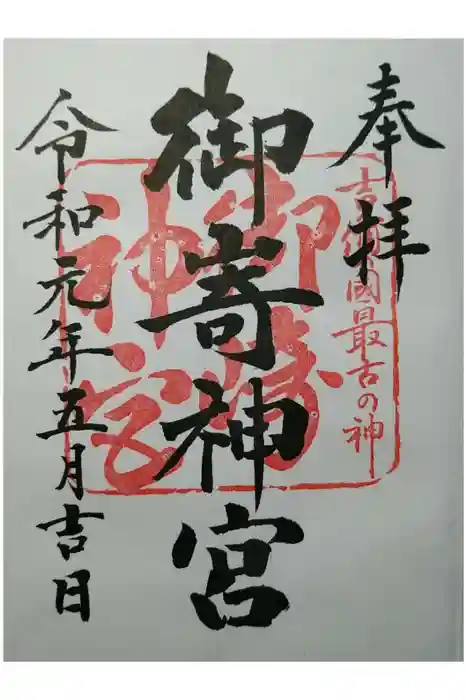 奉拝
吉備國最古の神
御嵜神宮
令和元年五月吉日